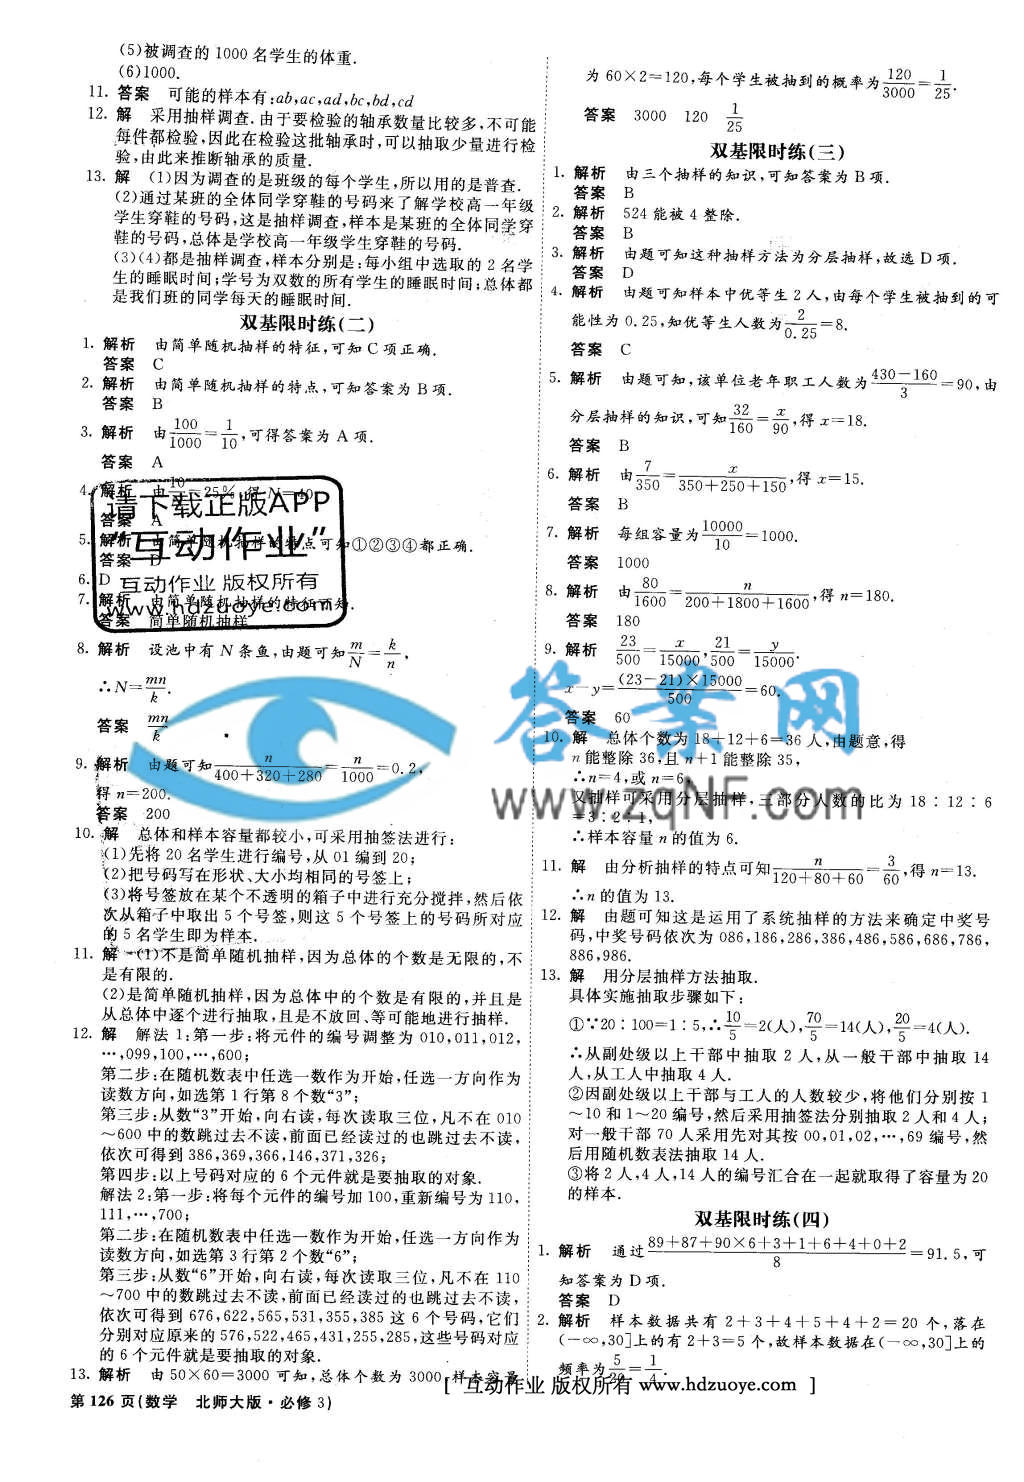 (5)被调查的 1000 名学生的体重.
(6)1000.
11. 答案 可能的样本有:ab,ac,ad,bc,bd,cd
12. 解 采用抽样调查.由于要检验的轴承数量比较多,不可能
每件都检验,因此在检验这批轴承时,可以抽取少量进行检
验,由此来推断轴承的质量.
13. 解 (1)因为调查的是班级的每个学生,所以用的是普查.
(2)通过某班的全体同学穿鞋的号码来了解学校高一年级
学生穿鞋的号码,这是抽样调查,样本是某班的全体同学穿
鞋的号码,总体是学校高一年级学生穿鞋的号码.
(3)(4)都是抽样调查,样本分别是:每小组中选取的 2 名学
生的睡眠时间;学号为双数的所有学生的睡眠时间;总体都
是我们班的同学每天的睡眠时间.
双基限时练(二)
1. 解析 由简单随机抽样的特征,可知 C 项正确.
答案 C
2. 解析 由简单随机抽样的特点,可知答案为 B 项.
答案 B
3. 解析 由100/1000=1/10,可得答案为 A 项.
答案 A
4. 解析 由10/N=25%,得 N=40.
答案 A
5. 解析 由简单随机抽样的特点可知①②③④都正确.
答案 D
6. D
7. 解析 由简单随机抽样的特征可知.
答案 简单随机抽样
请下载正版APP
“互动作业”
互动作业 版权所有
www.hdzuoye.com
8. 解析 设池中有 N 条鱼,由题可知m/N=k/n,
∴N=mn/k.
答案 mn/k
9. 解析 由题可知n/(400+320+280)=n/1000=0.2,
得 n=200.
答案 200
10. 解 总体和样本容量都较小,可采用抽签法进行:
(1)先将 20 名学生进行编号,从 01 编到 20;
(2)把号码写在形状、大小均相同的号签上;
(3)将号签放在某个不透明的箱子中进行充分搅拌,然后依
次从箱子中取出 5 个号签,则这 5 个号签上的号码所对应
的 5 名学生即为样本.
11. 解 (1)不是简单随机抽样,因为总体的个数是无限的,不
是有限的.
(2)是简单随机抽样,因为总体中的个数是有限的,并且是
从总体中逐个进行抽取,且是不放回、等可能地进行抽样.
12. 解 解法 1:第一步:将元件的编号调整为 010,011,012,
…,099,100,…,600;
第二步:在随机数表中任选一数作为开始,任选一方向作为
读数方向,如选第 1 行第 8 个数“3”;
第三步:从数“3”开始,向右读,每次读取三位,凡不在 010
～600 中的数跳过去不读,前面已经读过的也跳过去不读,
依次可得到 386,369,366,146,371,326;
第四步:以上号码对应的 6 个元件就是要抽取的对象.
解法 2:第一步:将每个元件的编号加 100,重新编号为 110,
111,…,700;
第二步:在随机数表中任选一数作为开始,任选一方向作为
读数方向,如选第 3 行第 2 个数“6”;
第三步:从数“6”开始,向右读,每次读取三位,凡不在 110
～700 中的数跳过去不读,前面已经读过的也跳过去不读,
依次可得到 676,622,565,531,355,385 这 6 个号码,它们
分别对应原来的 576,522,465,431,255,285,这些号码对应
的 6 个元件就是要抽取的对象.
13. 解析 由 50×60=3000 可知,总体个数为 3000,样本容量
第 126 页(数学 北师大版·必修 3)
为 60×2=120,每个学生被抽到的概率为120/3000=1/25.
答案 3000 120 1/25
双基限时练(三)
1. 解析 由三个抽样的知识,可知答案为 B 项.
答案 B
2. 解析 524 能被 4 整除.
答案 B
3. 解析 由题可知这种抽样方法为分层抽样,故选 D 项.
答案 D
4. 解析 由题可知样本中优等生 2 人,由每个学生被抽到的可
能性为 0.25,知优等生人数为2/0.25=8.
答案 C
5. 解析 由题可知,该单位老年职工人数为(430-160)/3=90,由
分层抽样的知识,可知32/160=x/90,得 x=18.
答案 B
6. 解析 由7/350=x/(350+250+150),得 x=15.
答案 B
7. 解析 每组容量为10000/10=1000.
答案 1000
8. 解析 由80/1600=n/(200+1800+1600),得 n=180.
答案 180
9. 解析 23/500=x/15000,21/500=y/15000.
x-y=(23-21)×15000/500=60.
答案 60
10. 解 总体个数为 18+12+6=36 人,由题意,得
n 能整除 36,且 n+1 能整除 35,
∴n=4,或 n=6,
又抽样可采用分层抽样,三部分人数的比为 18∶12∶6
=3∶2∶1,
∴样本容量 n 的值为 6.
答案网
www.zqNF.com
11. 解 由分析抽样的特点可知n/(120+80+60)=3/60,得 n=13.
∴n 的值为 13.
12. 解 由题可知这是运用了系统抽样的方法来确定中奖号
码,中奖号码依次为 086,186,286,386,486,586,686,786,
886,986.
13. 解 用分层抽样方法抽取.
具体实施抽取步骤如下:
①∵20∶100=1∶5,∴10/5=2(人),70/5=14(人),20/5=4(人).
∴从副处级以上干部中抽取 2 人,从一般干部中抽取 14
人,从工人中抽取 4 人.
②因副处级以上干部与工人的人数较少,将他们分别按 1
～10 和 1～20 编号,然后采用抽签法分别抽取 2 人和 4 人;
对一般干部 70 人采用先对其按 00,01,02,…,69 编号,然
后用随机数表法抽取 14 人.
③将 2 人,4 人,14 人的编号汇合在一起就取得了容量为 20
的样本.
双基限时练(四)
1. 解析 通过(89+87+90×6+3+1+6+4+0+2)/8=91.5,可
知答案为 D 项.
答案 D
2. 解析 样本数据共有 2+3+4+5+4+2=20 个,落在
(-∞,30]上的有 2+3=5 个,故样本数据在(-∞,30]上的
频率为5/20=1/4.
[ 互动作业 版权所有 www.hdzuoye.com ]